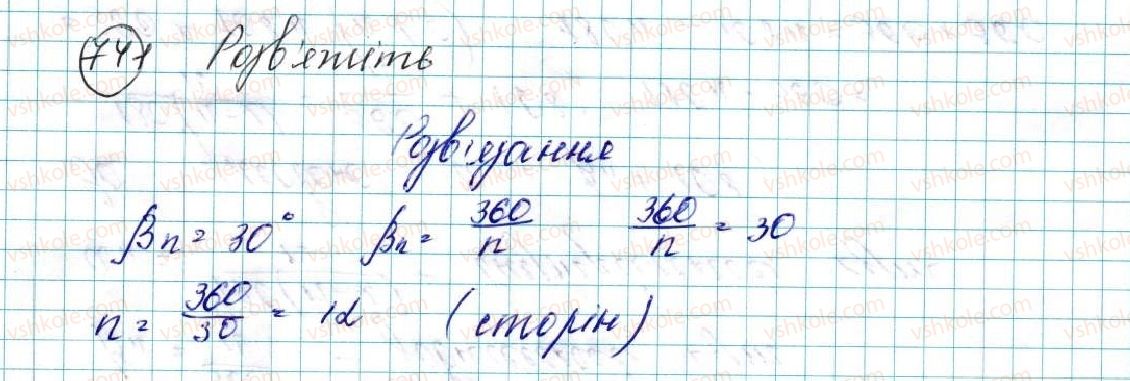 741 Розв'яжіть
Розв'язання
βn = 30° βn = 360/n 360/n = 30
n = 360/30 = 12 (сторін)